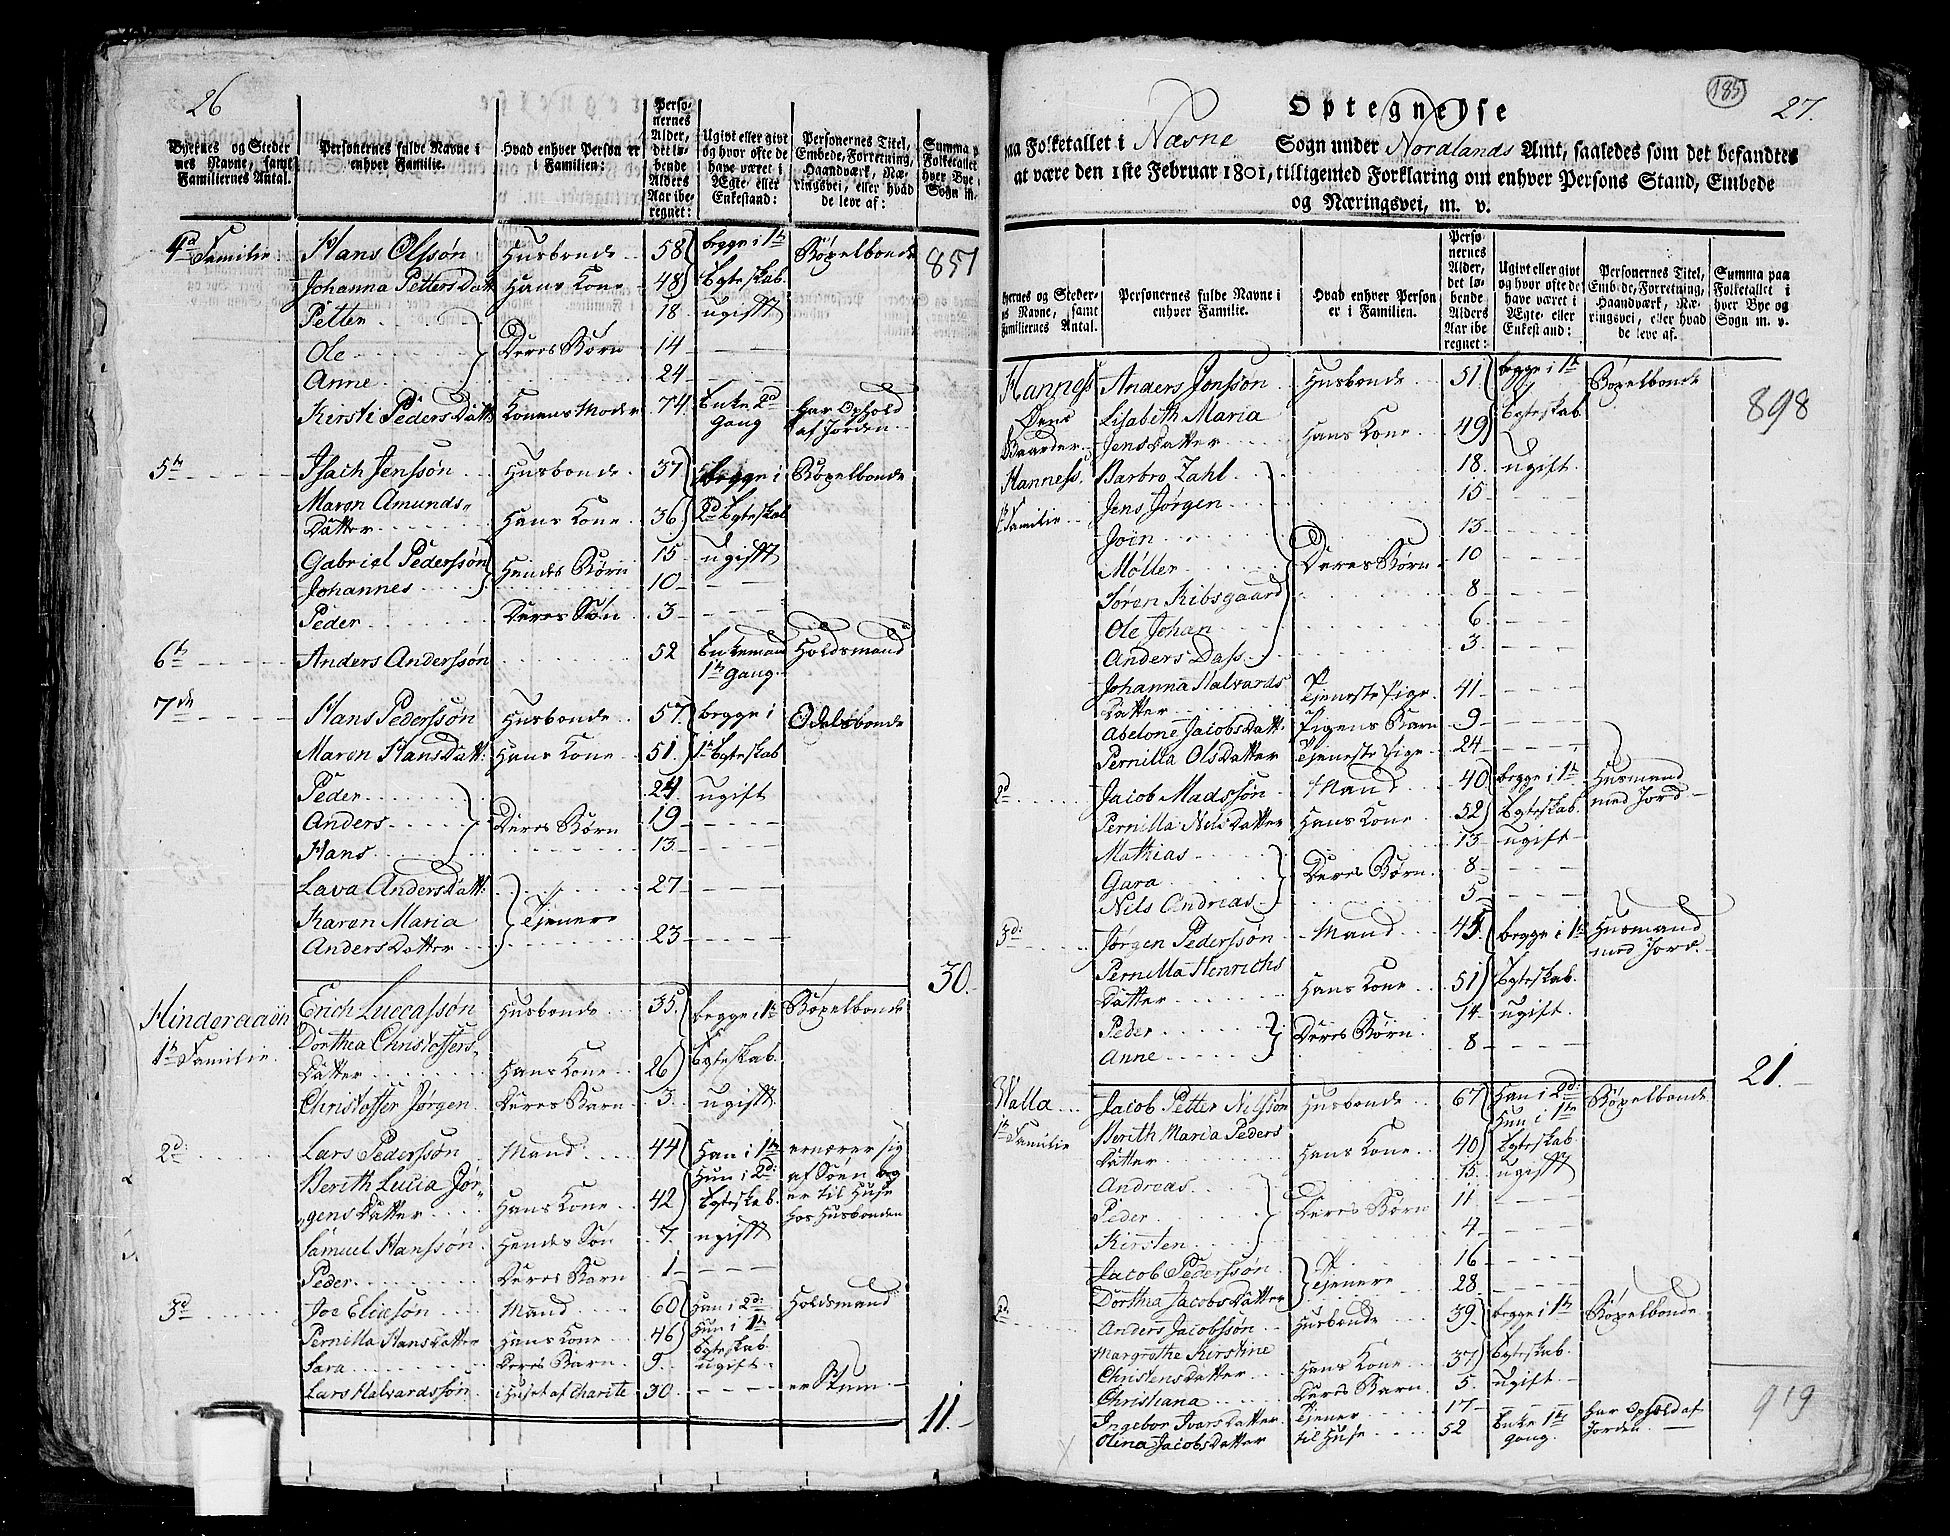 26
Byernes og Steder
nes Navne, samt
Familiernes Antal.
Personernes fulde Navne i
enhver Familie.
Hvad enhver Person er
i Familien:
Perso-
nernes
Alder,
det lø-
bende
Alders
Aar ibe-
regnet:
Ugivt eller givt
og hvor ofte de
have været i
Ægte- eller
Enkestand:
Personernes Titel,
Embede, Forretning,
Haandværk, Næ-
ringsvei, eller hvad
de leve af:
Summa p
Folketallet
hver Bye
Sogn m.
4d Familie Hans Olssøn Husbonde 58 begge i 1te Bøxelbonde 857
Johanna PettersDatt Hans Kone 48 Egteskab
Petter 18 ugifft
Ole Deres Børn 14
Anne 24
Kirsti PedersDatt Konens Moder 74 Enke 2d har Ophold
gang af Jorden
5te Isach Jenssøn Husbonde 37 begge i Bøxelbonde
Maren Amunds-
Datter Hans Kone 36 2d Egteskab
Gabriel Pederssøn 15 ugifft
Johannes Hendes Børn 10
Peder Deres Søn 3
6te Anders Anderssøn 52 Enkemand Holdsmand
1te gang
7de Hans Pederssøn Husbonde 57 begge i Odelsbonde
Maren HansDatt: Hans Kone 51 1te Egteskab
Peder 24 ugift
Anders Deres Børn 19
Hans 13
Lava AndersDatt: 27
Karen Maria Tjenere
AndersDatter 23
30.
Hinderaaen Erich Luccassøn Husbonde 35 begge i 1te Bøxelbonde
1te Familie Dorthea Christoffers-
Datter Hans Kone 26 Egteskab
Christoffer Jørgen Deres Barn 3 ugifft
2d: Lars Pederssøn Mand 44 Han i 1te ernærer sig
Berith Lucia Jør- Hun i 2d: af Søen og
gensDatter Hans Kone 42 Egteskab er til Huse
hos Husbonden
Samuel Hanssøn Hendes Søn 7 ugifft
Peder Deres Barn 1
3d Joe Eliasøn Mand 60 Han i 2d: Holdsmand
Pernilla HansDatter Hans Kone 46 Hun i 1te
Egteskab
Sara Deres Barn 9 ugift
Lars Halvardssøn i Huset af charite 30 er Stum
11.
185
27.
Optegnelse
paa Folketallet i Næsne Sogn under Nordlands Amt, saaledes som det befandtes
at være den 1ste Februar 1801, tilligemed Forklaring om enhver Persons Stand, Embede
og Næringsvei, m. v.
hernes og Steder-
es Navne, samt
Familiernes Antal.
Personernes fulde Navne i
enhver Familie.
Hvad enhver Person
er i Familien.
Perso-
nernes
Alder,
det lø-
bende
Alders
Aar ibe-
regnet:
Ugivt eller givt
og hvor ofte de
have været i
Ægte- eller
Enkestand:
Personernes Titel,
Embede, Forretning,
Haandværk, Næ-
ringsvei, eller hvad
de leve af.
Summa paa
Folketallet i
hver Bye og
Sogn m. v.
Hanness Anders Jonssøn Husbonde 51 begge i 1te Bøxelbonde 898
Øens Lisabeth Maria Egteskab
Gaarder. JensDatter Hans Kone 49
Hanness. Barbro Zahl 18 ugift
Jens Jørgen 15
Familie Join 13
Møller Deres Børn 10
Søren Kibsgaard 8
Ole Johan 6
Anders Dass 3
Johanna Halvards
Datter Tjeneste Pige 41
Abelone JacobsDatt: Pigens Barn 9
Pernilla OlsDatter Tjeneste Pige 24
2d Jacob Madssøn Mand 40 begge i 1te Husmand
med Jord
Pernilla NilsDatter Hans Kone 52 Egteskab
Mathias 13 ugift
Gara Deres Børn 8
Nils Andreas 5
3d: Jørgen Pederssøn Mand 45 begge i 1te Husmand
med Jord
Pernilla Henrichs
Datter Hans Kone 51 Egteskab
Peder 14 ugift
Anne Deres Børn 8
21.
Walla Jacob Petter Nilssøn Husbonde 67 Han i 2d: Bøxelbonde
1te Familie Berith Maria Peders Hun i 1te
Datter Hans Kone 40 Egteskab
Andreas 15 ugifft
Peder Deres Børn 11
Kirsten 4
Jacob Pederssøn 16
Dorthea JacobsDatter Tjenere 28
2d Anders Jacobssøn Husbonde 39 begge i 1te Bøxelbonde
Margrethe Kirstine
ChristensDatter Hans Kone 37 Egteskab
Christiana Deres Barn 5 ugift
Ingebor IvarsDatter Tjener 17
Olina JacobsDatter til Huse 52 Enke 1te Har Ophold af
gang. Jorden
919